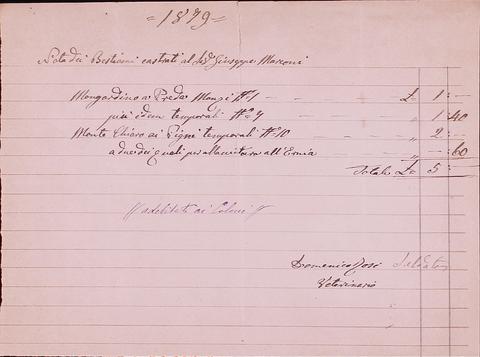 =1879=
Nota dei Bestiami castrati al Sig Giuseppe Marconi
Mongardino a Preda Manzi N° 1 - - £ 1:-
più idem temporali N° 7 - - " 1:40
Monte Chiaro ai Pigni temporali N° 10 " 2:-
a due dei quali per allacciatura all'Ernia " -:60
Totale £ 5:
addebitati ai Coloni
Domenico Saldato
Veterinario